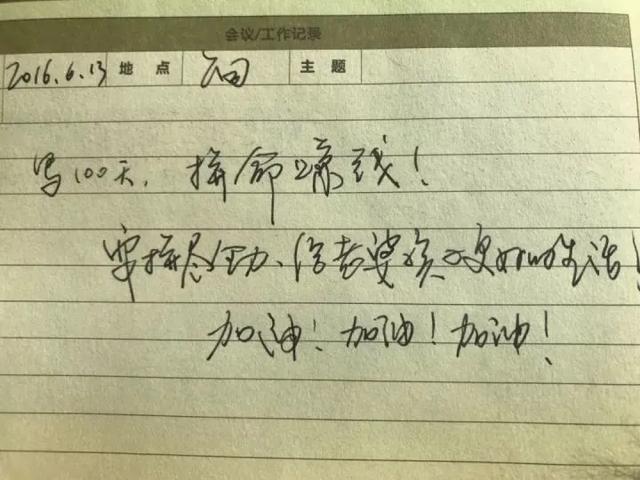 会议/工作记录
2016.6.13 地点 主题
写100天，拼命赚钱！
要拼尽全力、给老婆孩子更好的生活！
加油！加油！加油！